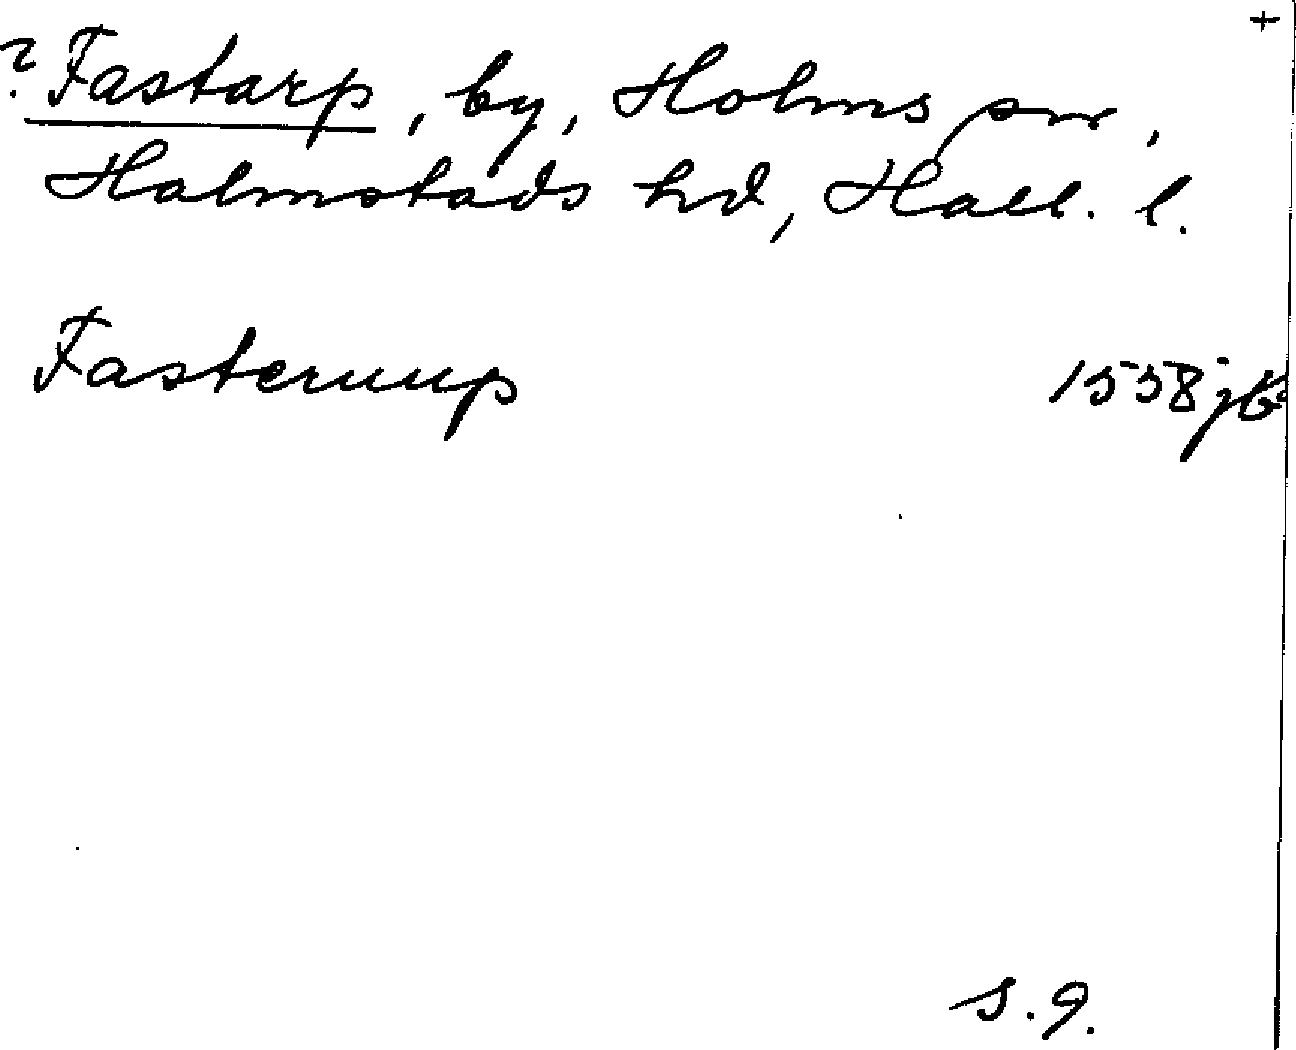 +
? Fastarp, by, Holms sn,
Halmstads hd, Hall. l.
Fasterup 1558 jb
s. 9.